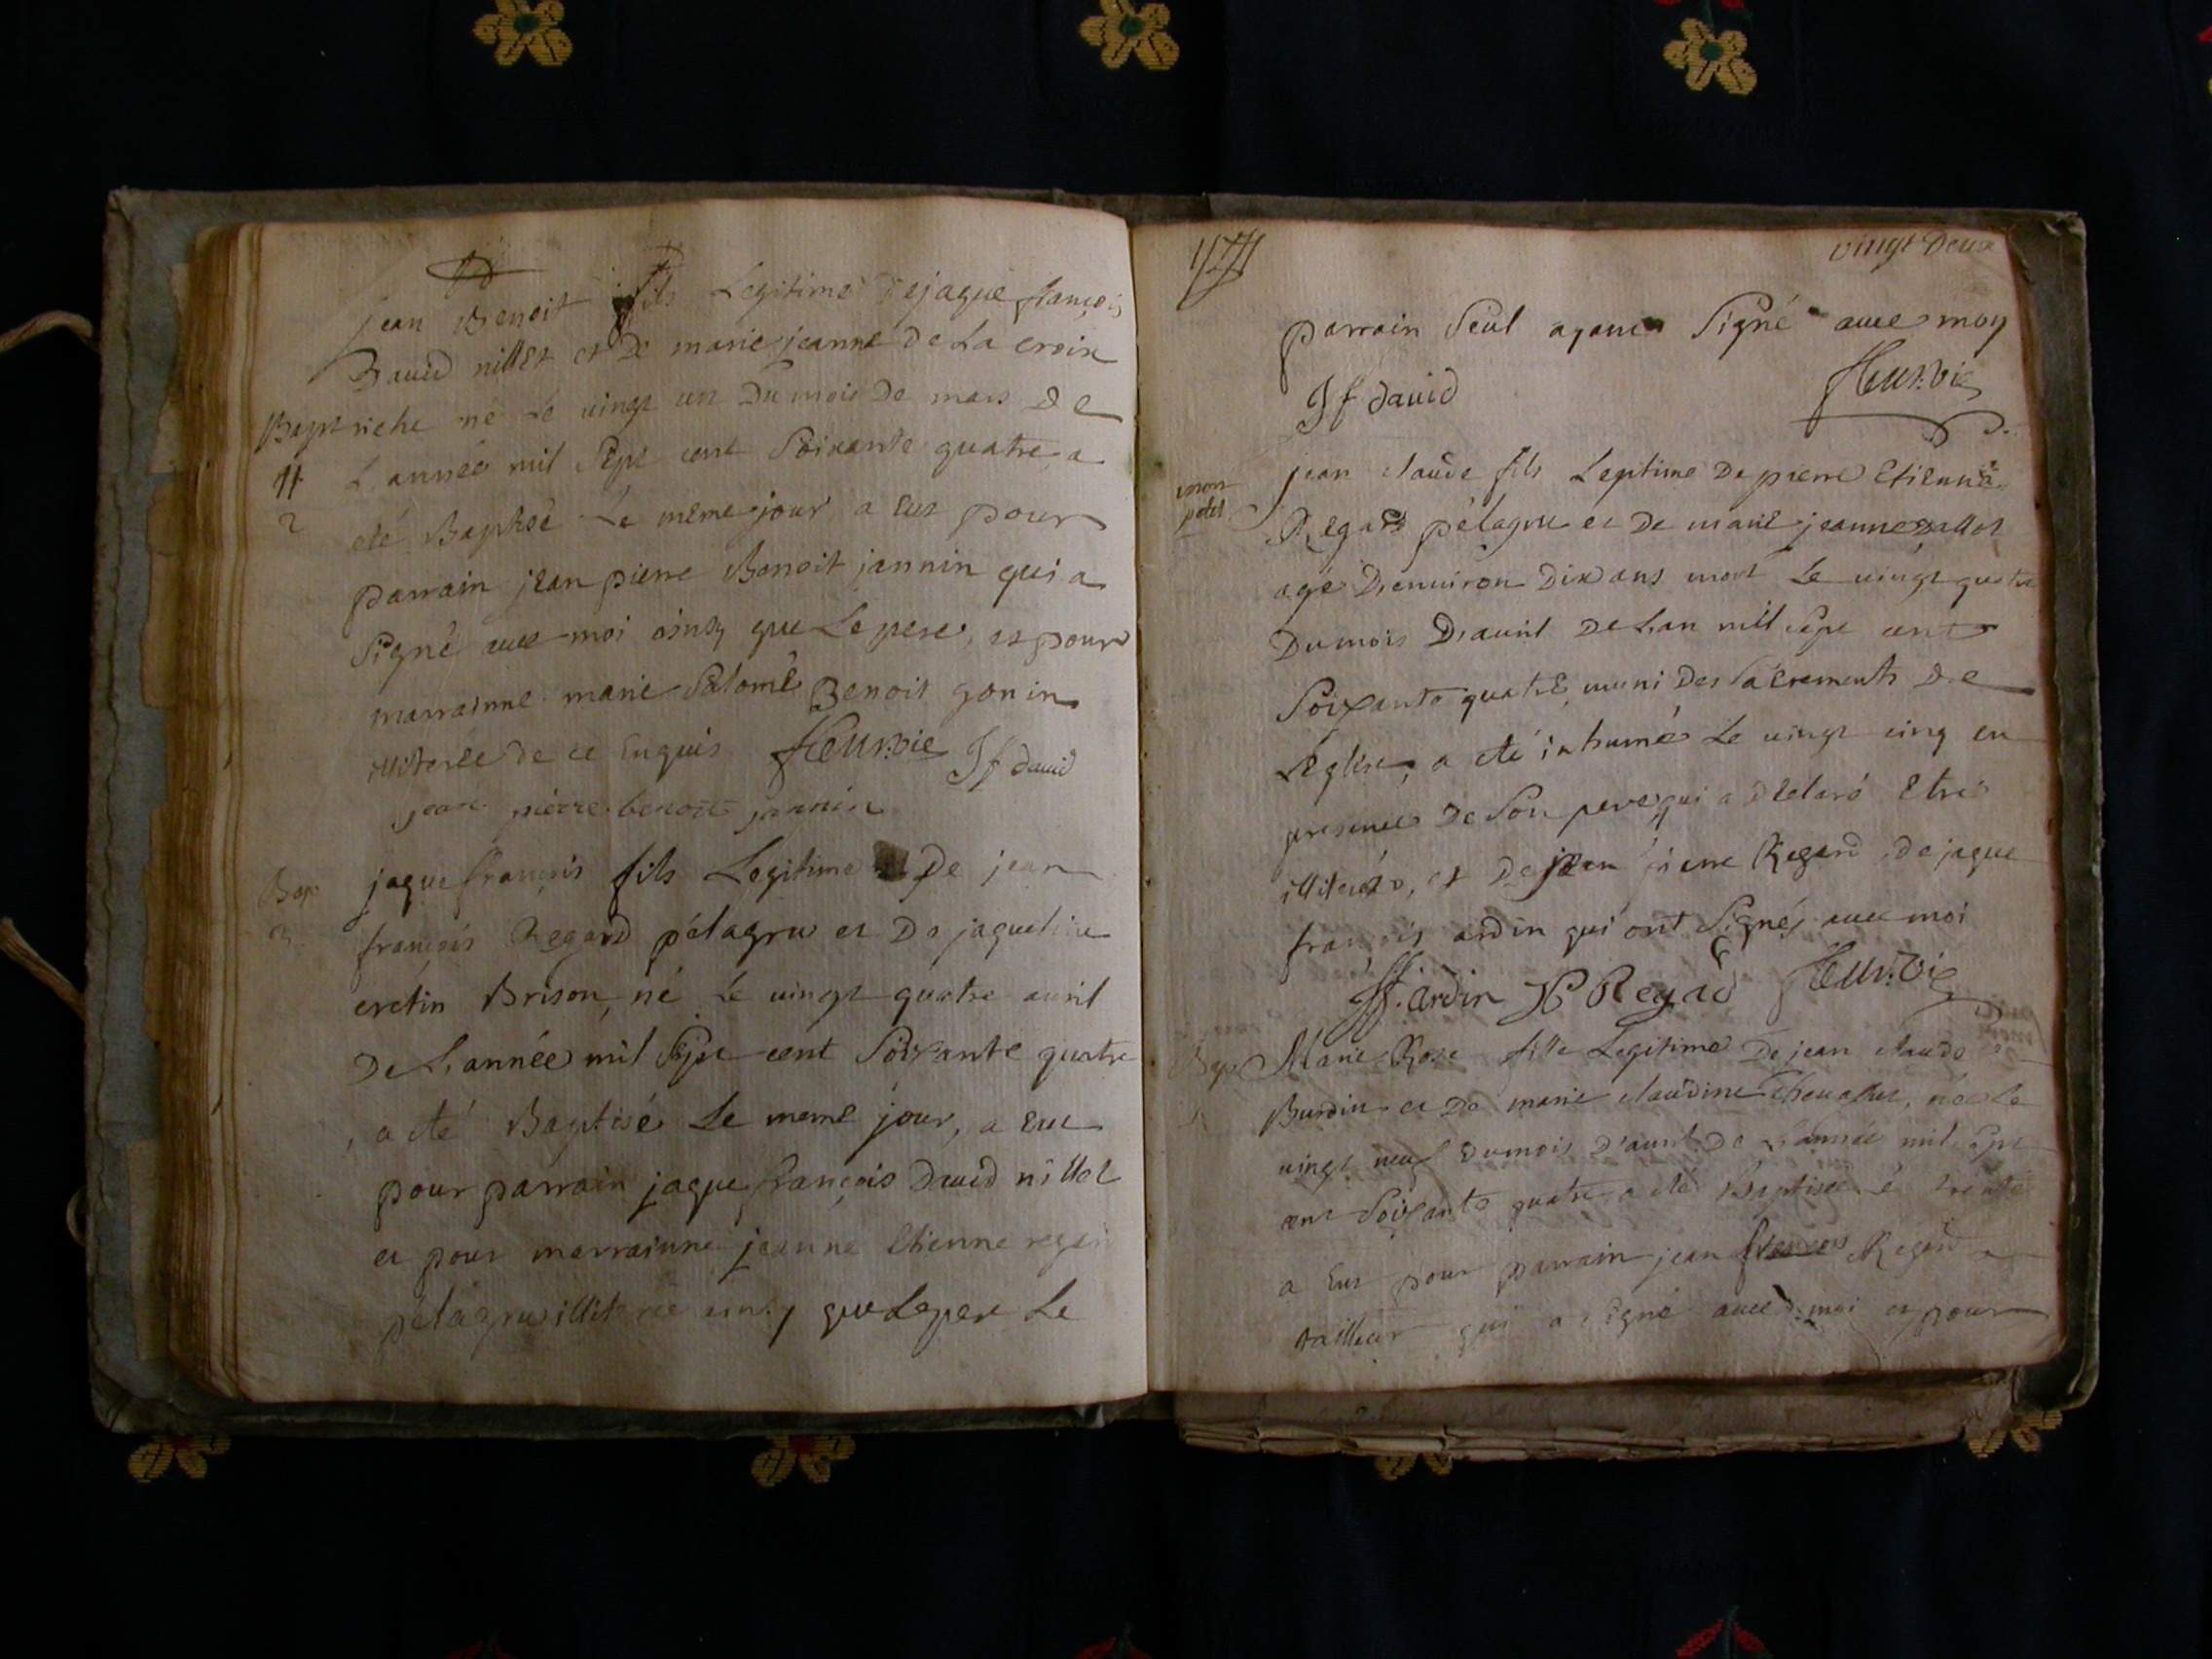 jean Benoit fils Legitime de jaque françois
David nillet et De marie jeanne De La croix
Bapt riche né Le vingt un Du mois De mars De
L'année mil Sept cent Soixante quatre a
2 eté Baptisé Le meme jour a Eut pour
parrain jean pierre Benoit jannin qui a
Signé avec moi ainsy que Le pere, et pour
marrainne marie Salomé Benoit gonin
illiterée de ce Enquis J f david
jean pierre benoit jannin
Bap jaque françois fils Legitime De jean
3 françois Regard pélagru et De jaqueline
cretin Brison, né Le vingt quatre avril
De L'année mil Sept cent Soixante quatre
a eté Baptisé Le meme jour, a Eut
pour parrain jaque françois David nillet
et pour marrainne jeanne Etienne regard
pelagru illiterée ainsy que Le pere Le
vingt Deux
parrain Seul ayant Signé avec moy
J f david
mort jean claude fils Legitime De pierre Etienne
petit Regard pélagru et De marie jeanne
agé D'environ Dix ans mort Le vingt quatre
Du mois D'avril De L'an mil Sept cent
Soixante quatre, muni Des Sacrements De
L'eglise, a eté inhumé Le vingt cinq en
presence De Son pere qui a Declaré Etre
illiteré, et De jean pierre Regard, De jaque
françois ardin qui ont Signés avec moi
J f. ardin J P Regad
Bap Marie Rose fille Legitime De jean claude
Burdin et De marie claudine Chevassus, née Le
vingt neuf Du mois D'avril De L'année mil Sept
cent Soixante quatre a eté Baptisée Le trente
a Eut pour parrain jean françois Regard
tailleur qui a signé avec moi et pour